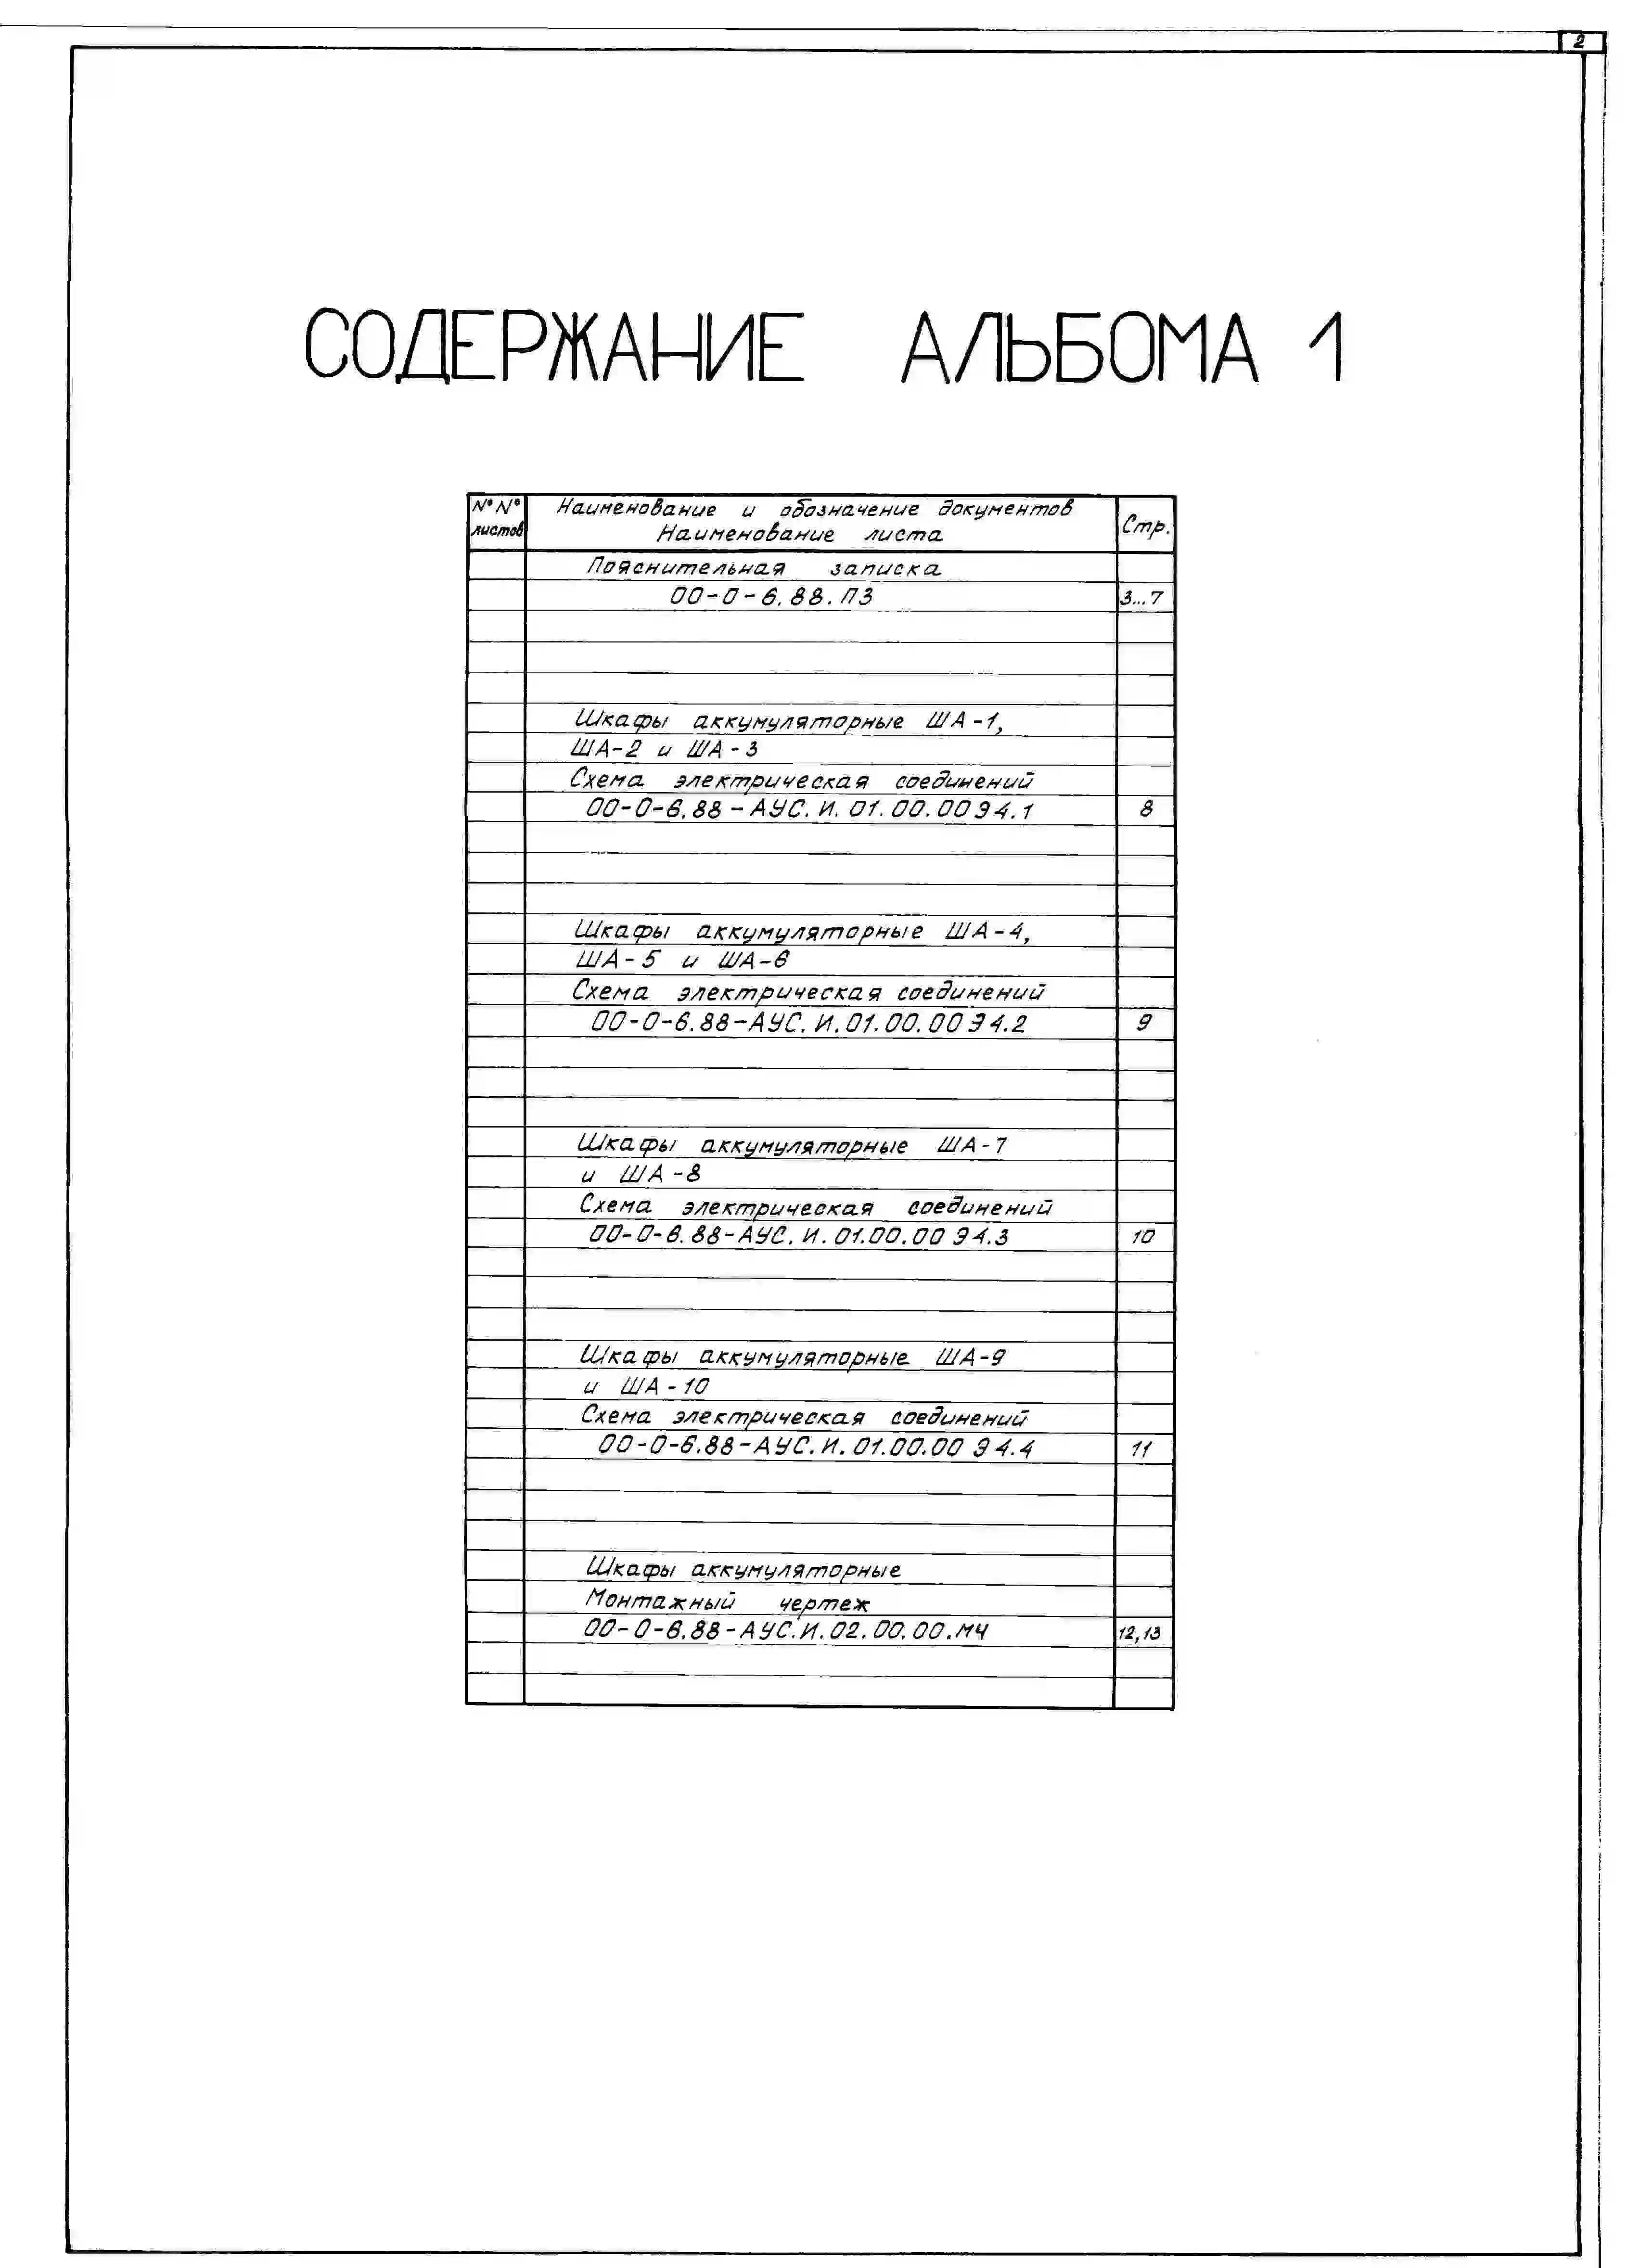 2
СОДЕРЖАНИЕ АЛЬБОМА 1
№ № листов
Наименование и обозначение документов
Наименование листа
Стр.
Пояснительная записка
00-0-6.88.ПЗ 3...7
Шкафы аккумуляторные ША-1,
ША-2 и ША-3
Схема электрическая соединений
00-0-6.88-АУС.И.01.00.00Э4.1 8
Шкафы аккумуляторные ША-4,
ША-5 и ША-6
Схема электрическая соединений
00-0-6.88-АУС.И.01.00.00Э4.2 9
Шкафы аккумуляторные ША-7
и ША-8
Схема электрическая соединений
00-0-6.88-АУС.И.01.00.00 Э4.3 10
Шкафы аккумуляторные ША-9
и ША-10
Схема электрическая соединений
00-0-6.88-АУС.И.01.00.00 Э4.4 11
Шкафы аккумуляторные
Монтажный чертеж
00-0-6.88-АУС.И.02.00.00.МЧ 12,13